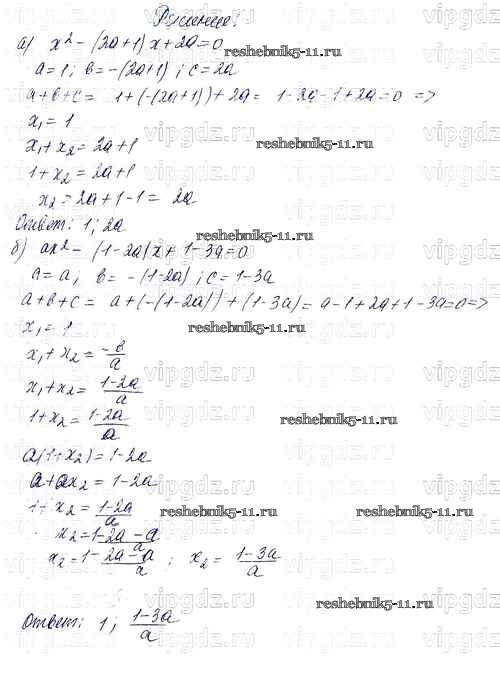 Решение:
а) x² - (2a+1)x + 2a = 0
a = 1; b = -(2a+1); c = 2a
a + b + c = 1 + (-(2a+1)) + 2a = 1 - 2a - 1 + 2a = 0 =>
x₁ = 1
x₁ + x₂ = 2a + 1
1 + x₂ = 2a + 1
x₂ = 2a + 1 - 1 = 2a
Ответ: 1; 2a
б) ax² - (1-2a)x + 1 - 3a = 0
a = a; b = -(1-2a); c = 1-3a
a + b + c = a + (-(1-2a)) + (1-3a) = a - 1 + 2a + 1 - 3a = 0 =>
x₁ = 1
x₁ + x₂ = -b/a
x₁ + x₂ = (1-2a)/a
1 + x₂ = (1-2a)/a
a(1+x₂) = 1-2a
a + ax₂ = 1-2a
1 + x₂ = (1-2a)/a
x₂ = (1-2a-a)/a
x₂ = (1-2a-a)/a; x₂ = (1-3a)/a
Ответ: 1; (1-3a)/a
reshebnik5-11.ru
vipgdz.ru